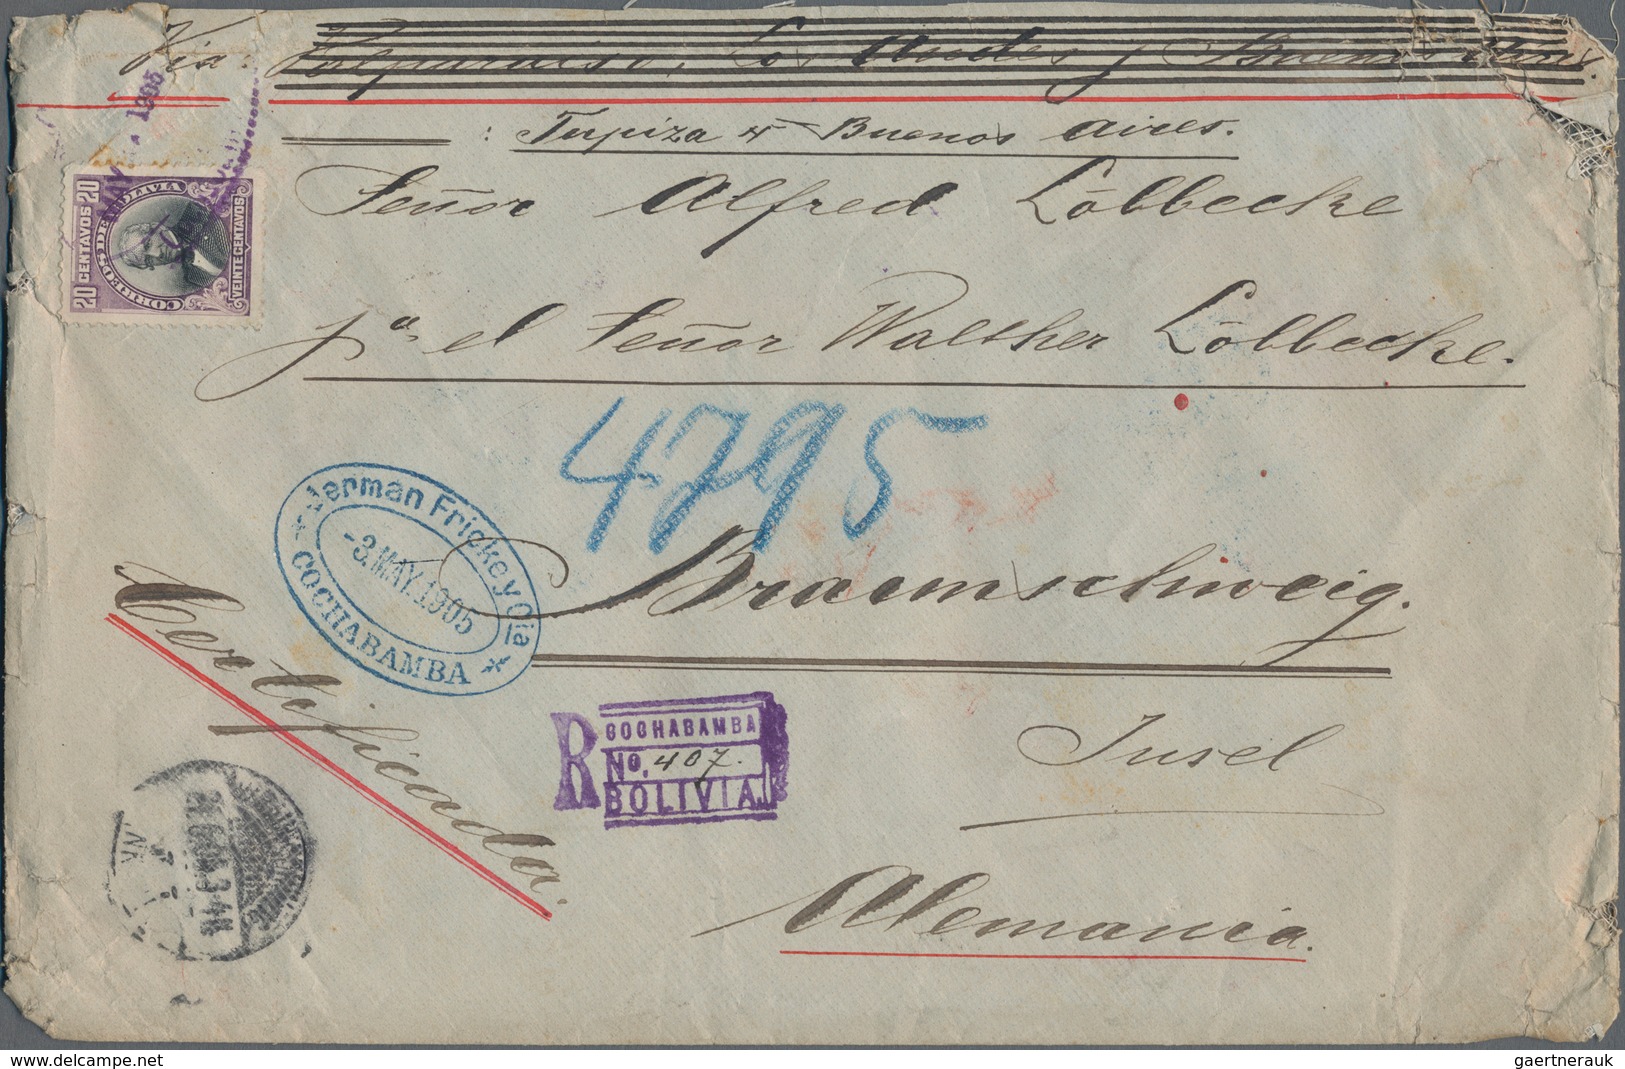 Via Valparaiso, Los Andes y Buenos Aires.
: Tupiza y Buenos Aires.
1905
20 CENTAVOS 20
CORREOS DE BOLIVIA
VEINTE CENTAVOS
Señor Alfred Löbbecke
pa el Señor Walther Löbbecke.
4795
Herman Fricke y Cia
-3.MAY.1905
COCHABAMBA
Braunschweig.
Certificada.
R COCHABAMBA
No. 407.
BOLIVIA.
Insel
Alemania.
www.delcampe.net
gaertnerauk